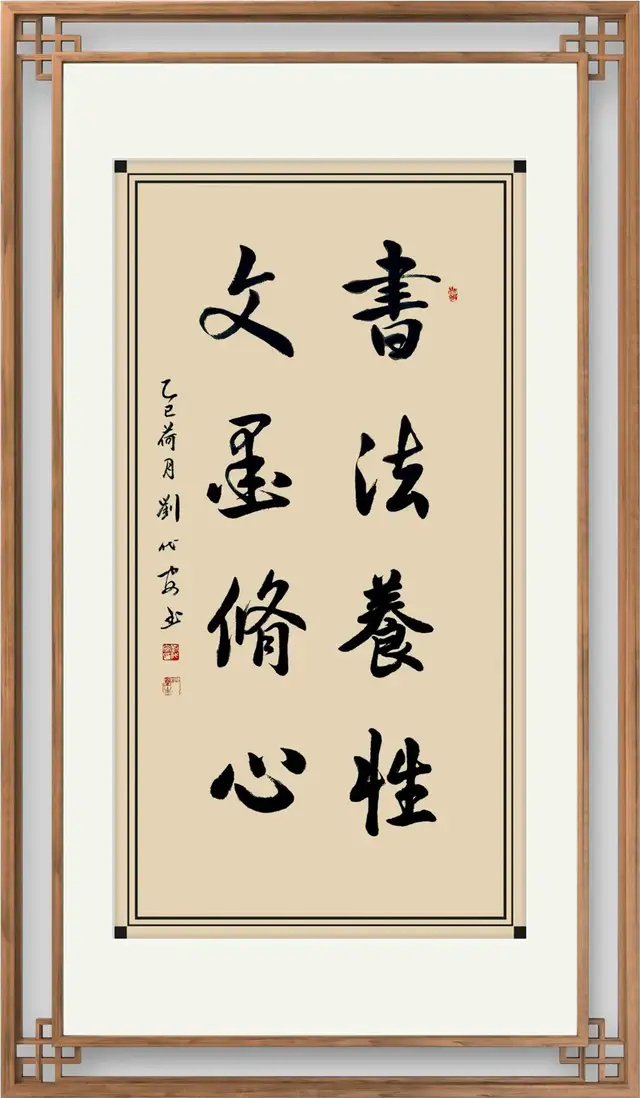 書法養性
文墨脩心
乙巳荷月劉代安书